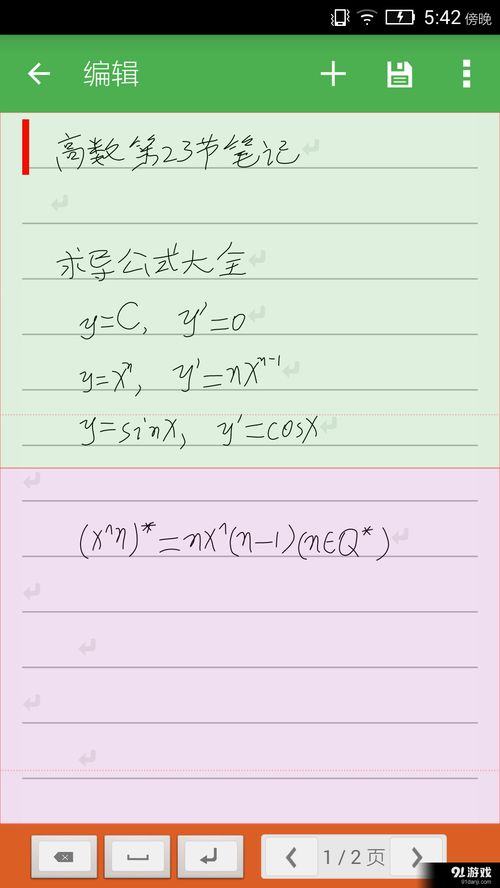 5:42 傍晚
编辑
高数第23节笔记
求导公式大全
y=C, y'=0
y=xⁿ, y'=nxⁿ⁻¹
y=sinx, y'=cosx
(x^n)*=nx^(n-1)(n∈Q*)
1/2页
91游戏
91danji.com